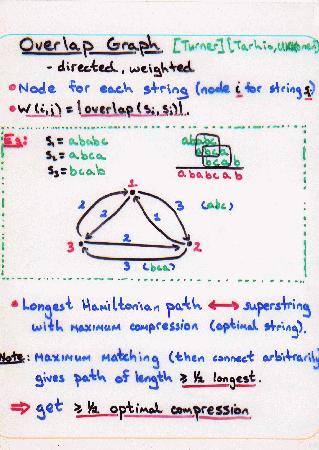 Overlap Graph [Turner] [Tarhio, Ukkonen]
- directed, weighted
• Node for each string (node i for string si)
• W(i,j) = |overlap(si, sj)|.
Eg: S1 = ababc
S2 = abca
S3 = bcab
ababc
abca
bcab
ababcab
1
2 2 1 3 (abc)
3 2 2
3 (bca)
• Longest Hamiltonian path ↔ superstring
with maximum compression (optimal string).
Note: Maximum matching (then connect arbitrarily)
gives path of length ≥ 1/2 longest.
⇒ get ≥ 1/2 optimal compression